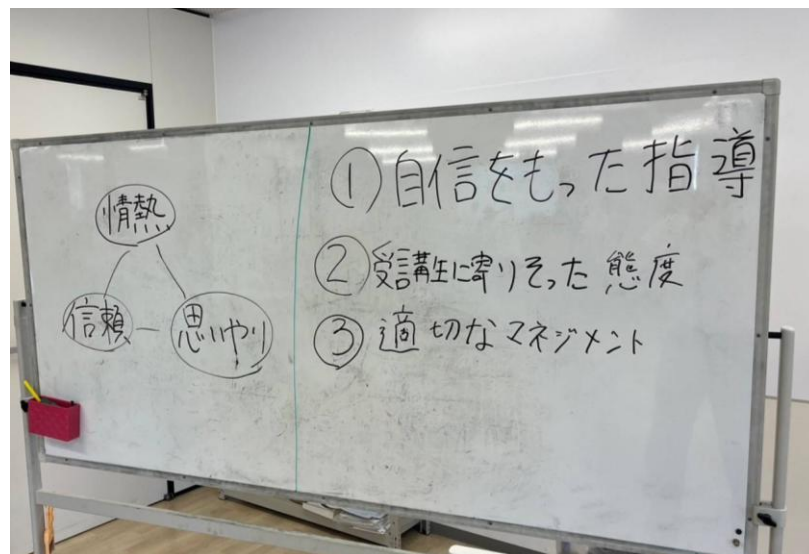 情熱
信頼
思いやり
① 自信をもった指導
② 受講生に寄りそった態度
③ 適切なマネジメント